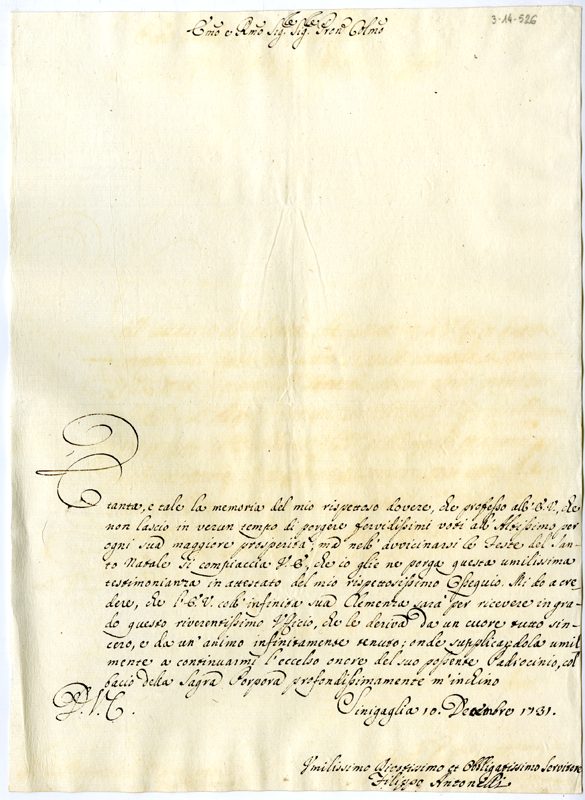 3-14-526
Emo e Rmo Sig.re Sig.re Pron Colmo
E tanta, e tale la memoria del mio rispettoso dovere, che professo all'E.V., che
non lascio in verun tempo di porgere fervidissimi voti all'Altissimo per
ogni sua maggiore prosperità; mà nell'avvicinarsi le Feste del San-
to Natale si compiaccia V.E., che io glie ne porga questa umilissima
testimonianza in attestato del mio rispettosissimo Ossequio. Mi do a cre-
dere, che l'E.V. coll'infinita sua Clemenza sarà per ricevere in gra-
do questo riverentissimo Uffizio, che le deriva da un cuore tutto sin-
cero, e da un'animo infinitamente tenuto; onde supplicandola umil-
mente a continuarmi l'eccelso onore del suo possente Padrocinio, col
bacio della Sagra Porpora profondissimamente m'inchino
D. V. E.
Sinigaglia 10. Decembre 1731.
Umilissimo Divotissimo et Obbligatissimo Servitore
Filippo Antonelli